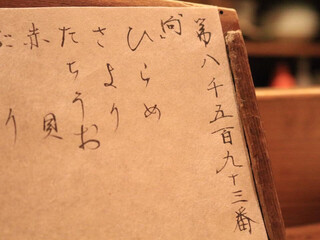 第八千五百九十三番
向
ひらめ
さより
たちうお
赤貝
り